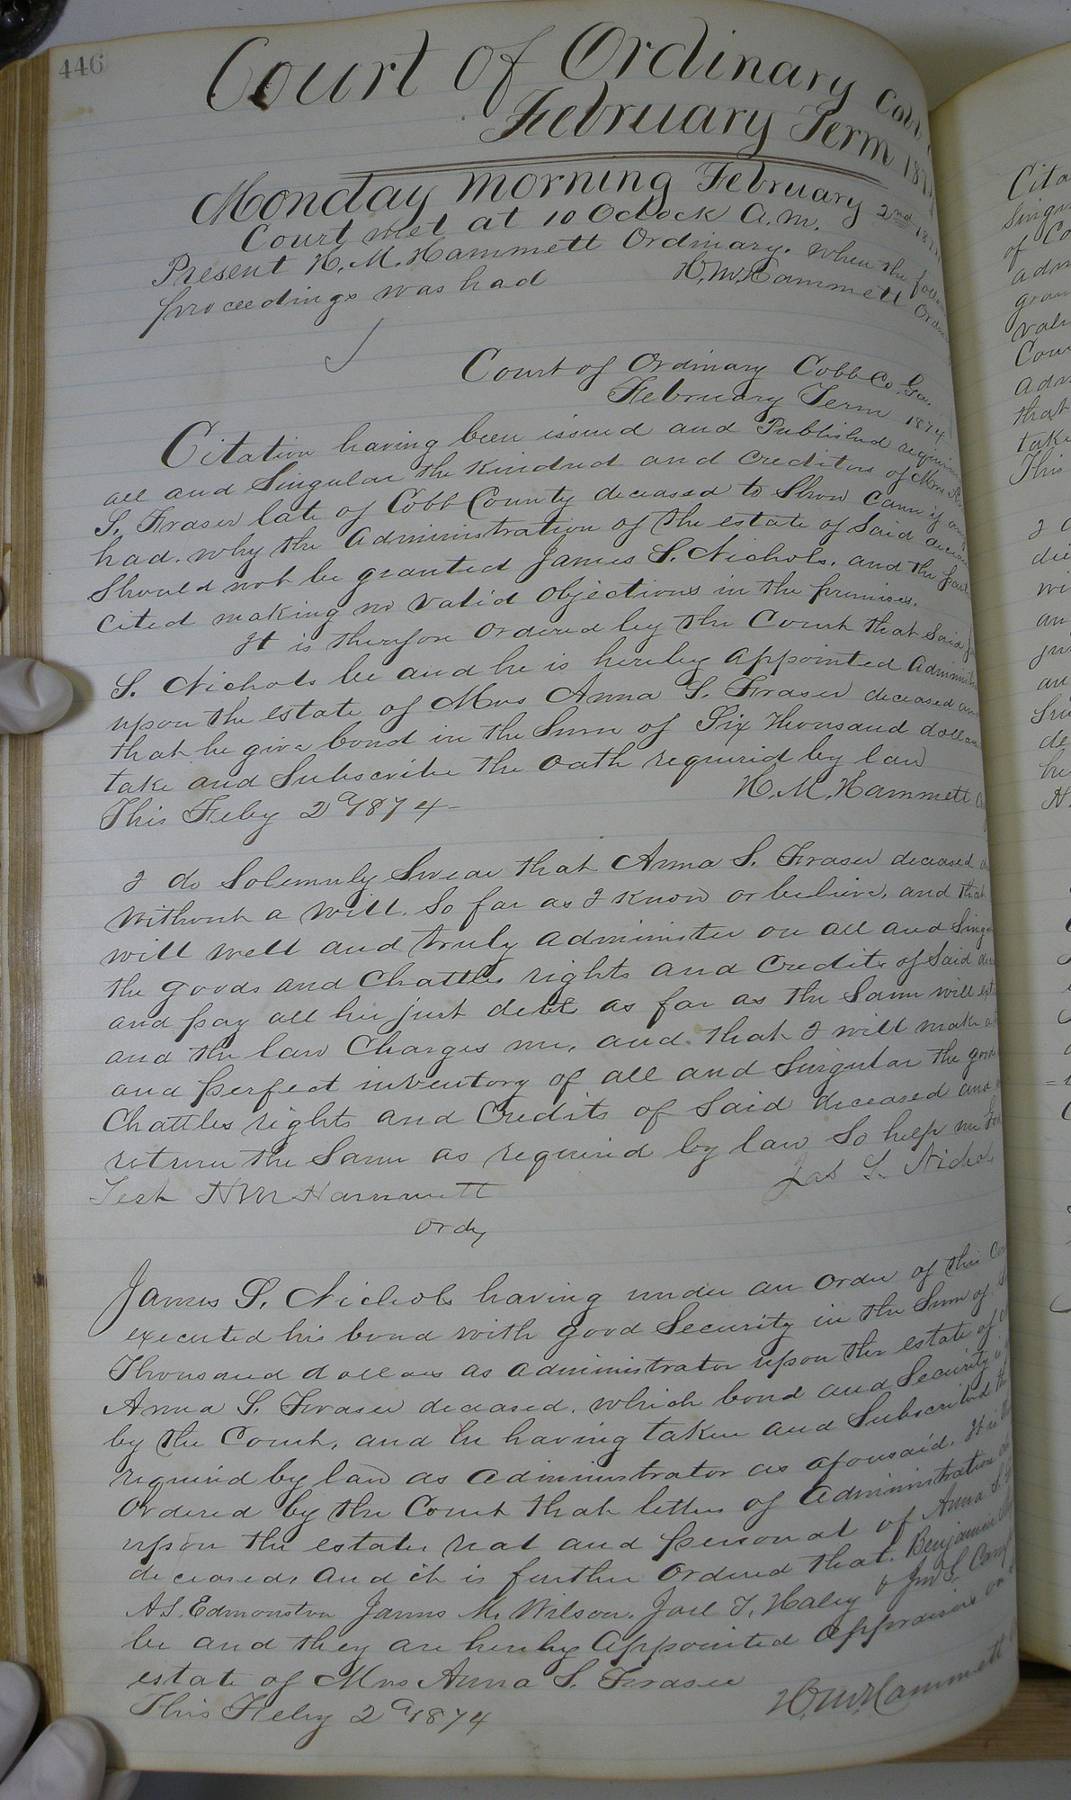 446
Court of Ordinary Cobb
February Term 187
Monday morning February 2nd 187
Court met at 10 Oclock A.M.
Present H. M. Hammett Ordinary. when the follow
proceedings was had H. M. Hammett Ordin
Court of Ordinary Cobb Co. Geo.
February Term 1874
Citation having been issued and Published requiring
all and Singular the Kindred and creditors of Mrs A
S. Fraser late of Cobb County deceased to Show Cause if any
had. why the Administration of the estate of Said deceas
Should not be granted James S. Nichols. and the parties
cited making no valid objections in the premises.
It is therefore Ordered by the Court that Said J
S. Nichols be and he is hereby appointed Administ
upon the estate of Mrs Anna S. Fraser deceased an
that he give bond in the Sum of Six Thousand dollars
take and Subscribe the oath required by law
This Feby 2d 1874 H. M. Hammett O
I do Solemnly Swear that Anna S. Fraser deceased d
without a will. So far as I know or believe, and that
will well and truly administer on all and Singu
the goods and Chattles rights and Credits of Said dec
and pay all her just debt as far as the Same will ext
and the law Charges me, and that I will make a t
and perfect inventory of all and Singular the goods
Chattles rights and Credits of Said deceased and
return the Same as required by law So help me God
Test H M Hammett Jas S. Nichols
Ordy
James S. Nichols having under an order of this Co
executed his bond with good Security in the Sum of S
Thousand dollars as administrator upon the estate of
Anna S. Fraser deceased. which bond and Security is
by the Court, and he having taken and Subscribed the
required by law as administrator as aforesaid. It is th
Ordered by the Court that letters of Administration
upon the estate real and personal of Anna S.
deceased, and it is further Ordered that. Benjamin
A. S. Edmonston James M. Wilson. Joel T. Haley & Jno S. Camp
be and they are hereby Appointed Appraisers on
estate of Mrs Anna S. Fraser
This Feby 2d 1874 H. M. Hammett